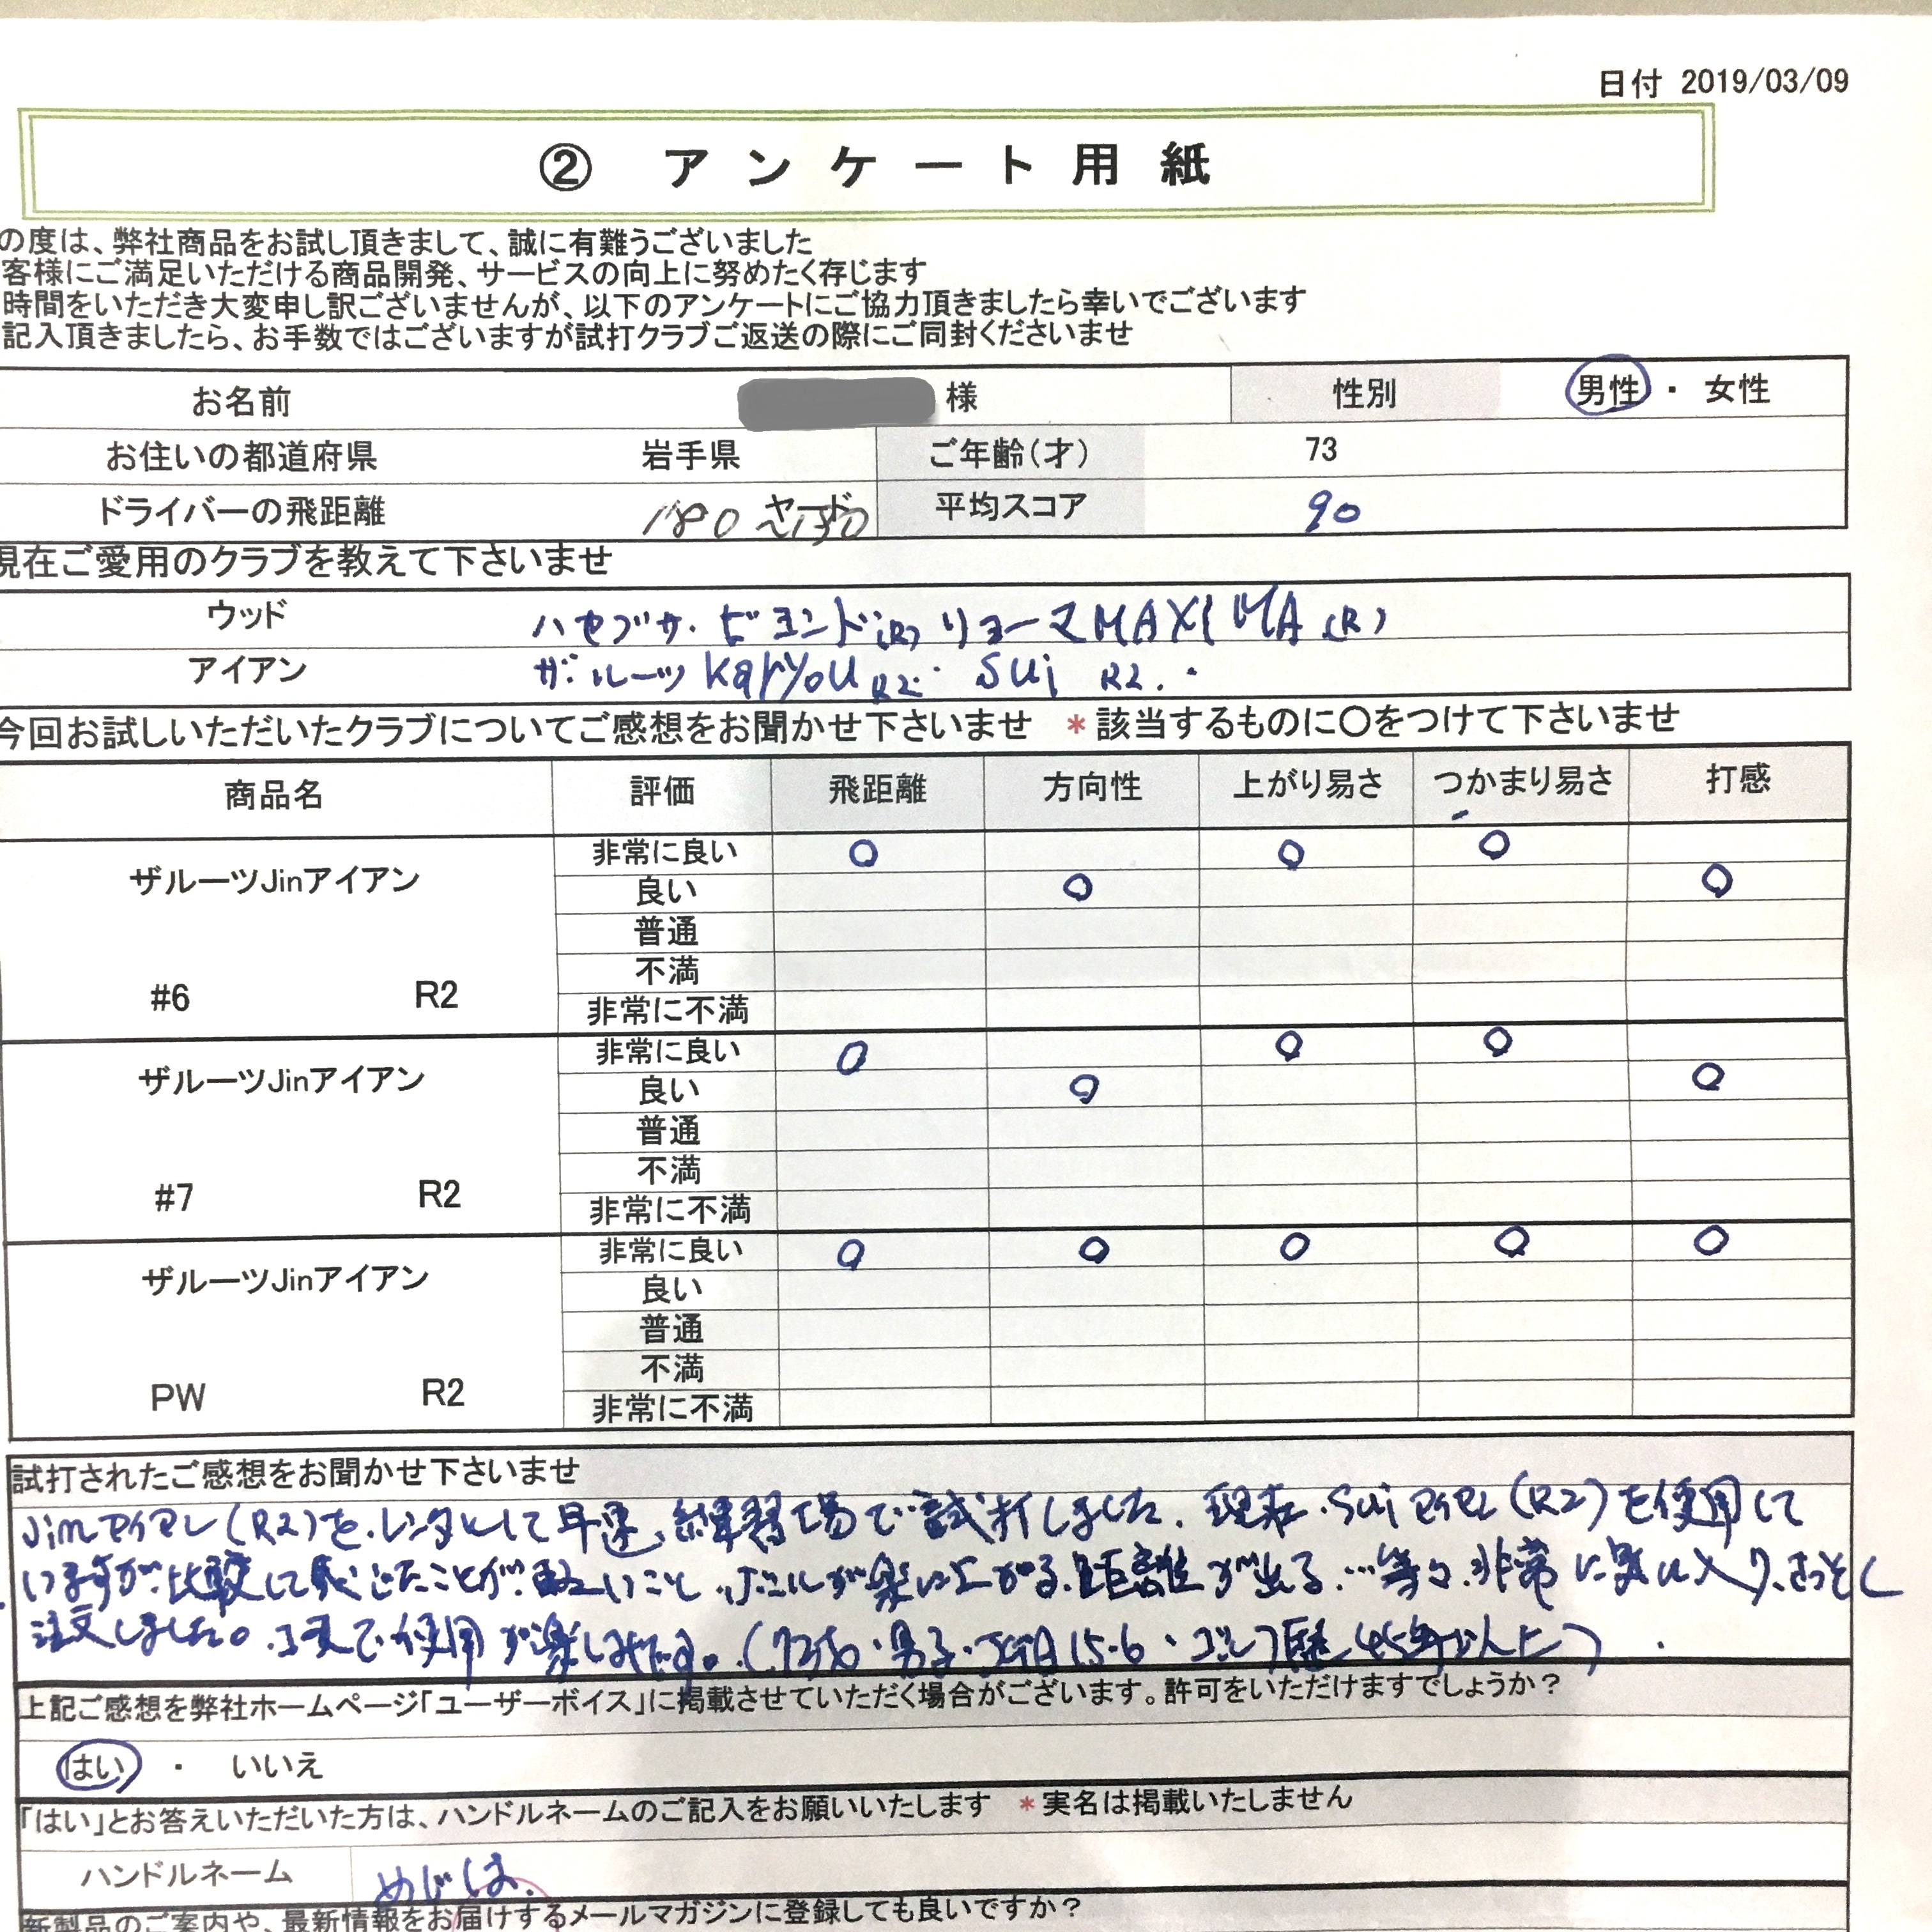 日付 2019/03/09
② アンケート用紙
の度は、弊社商品をお試し頂きまして、誠に有難うございました
客様にご満足いただける商品開発、サービスの向上に努めたく存じます
時間をいただき大変申し訳ございませんが、以下のアンケートにご協力頂きましたら幸いでございます
記入頂きましたら、お手数ではございますが試打クラブご返送の際にご同封くださいませ
お名前 様 性別 男性 ・ 女性
お住いの都道府県 岩手県 ご年齢(才) 73
ドライバーの飛距離 180 ヤード 平均スコア 90
現在ご愛用のクラブを教えて下さいませ
ウッド ハセブサ・ビヨンド(R) リョーマMAXIMA(R)
アイアン ザ・ルーツ Karyou R2・ Sui R2.
今回お試しいただいたクラブについてご感想をお聞かせ下さいませ *該当するものに〇をつけて下さいませ
商品名 評価 飛距離 方向性 上がり易さ つかまり易さ 打感
ザルーツJinアイアン 非常に良い 〇 〇 〇
良い 〇 〇
普通
不満
#6 R2 非常に不満
ザルーツJinアイアン 非常に良い 〇 〇 〇
良い 〇 〇
普通
不満
#7 R2 非常に不満
ザルーツJinアイアン 非常に良い 〇 〇 〇 〇 〇
良い
普通
不満
PW R2 非常に不満
試打されたご感想をお聞かせ下さいませ
Jinアイアン(R2)を、レンタルして早速、練習場で試打しました。現在、Suiアイアン(R2)を使用して
いますが、比較して感じたことが、軽いこと、ボールが楽に上がる、距離が出る…等々、非常に気に入り、さっそく
注文しました。コースで使用が楽しみです。(73才・男子・JGA15.6・ゴルフ歴45年以上)
上記ご感想を弊社ホームページ「ユーザーボイス」に掲載させていただく場合がございます。許可をいただけますでしょうか?
はい ・ いいえ
「はい」とお答えいただいた方は、ハンドルネームのご記入をお願いいたします *実名は掲載いたしません
ハンドルネーム めじは.
新製品のご案内や、最新情報をお届けするメールマガジンに登録しても良いですか?